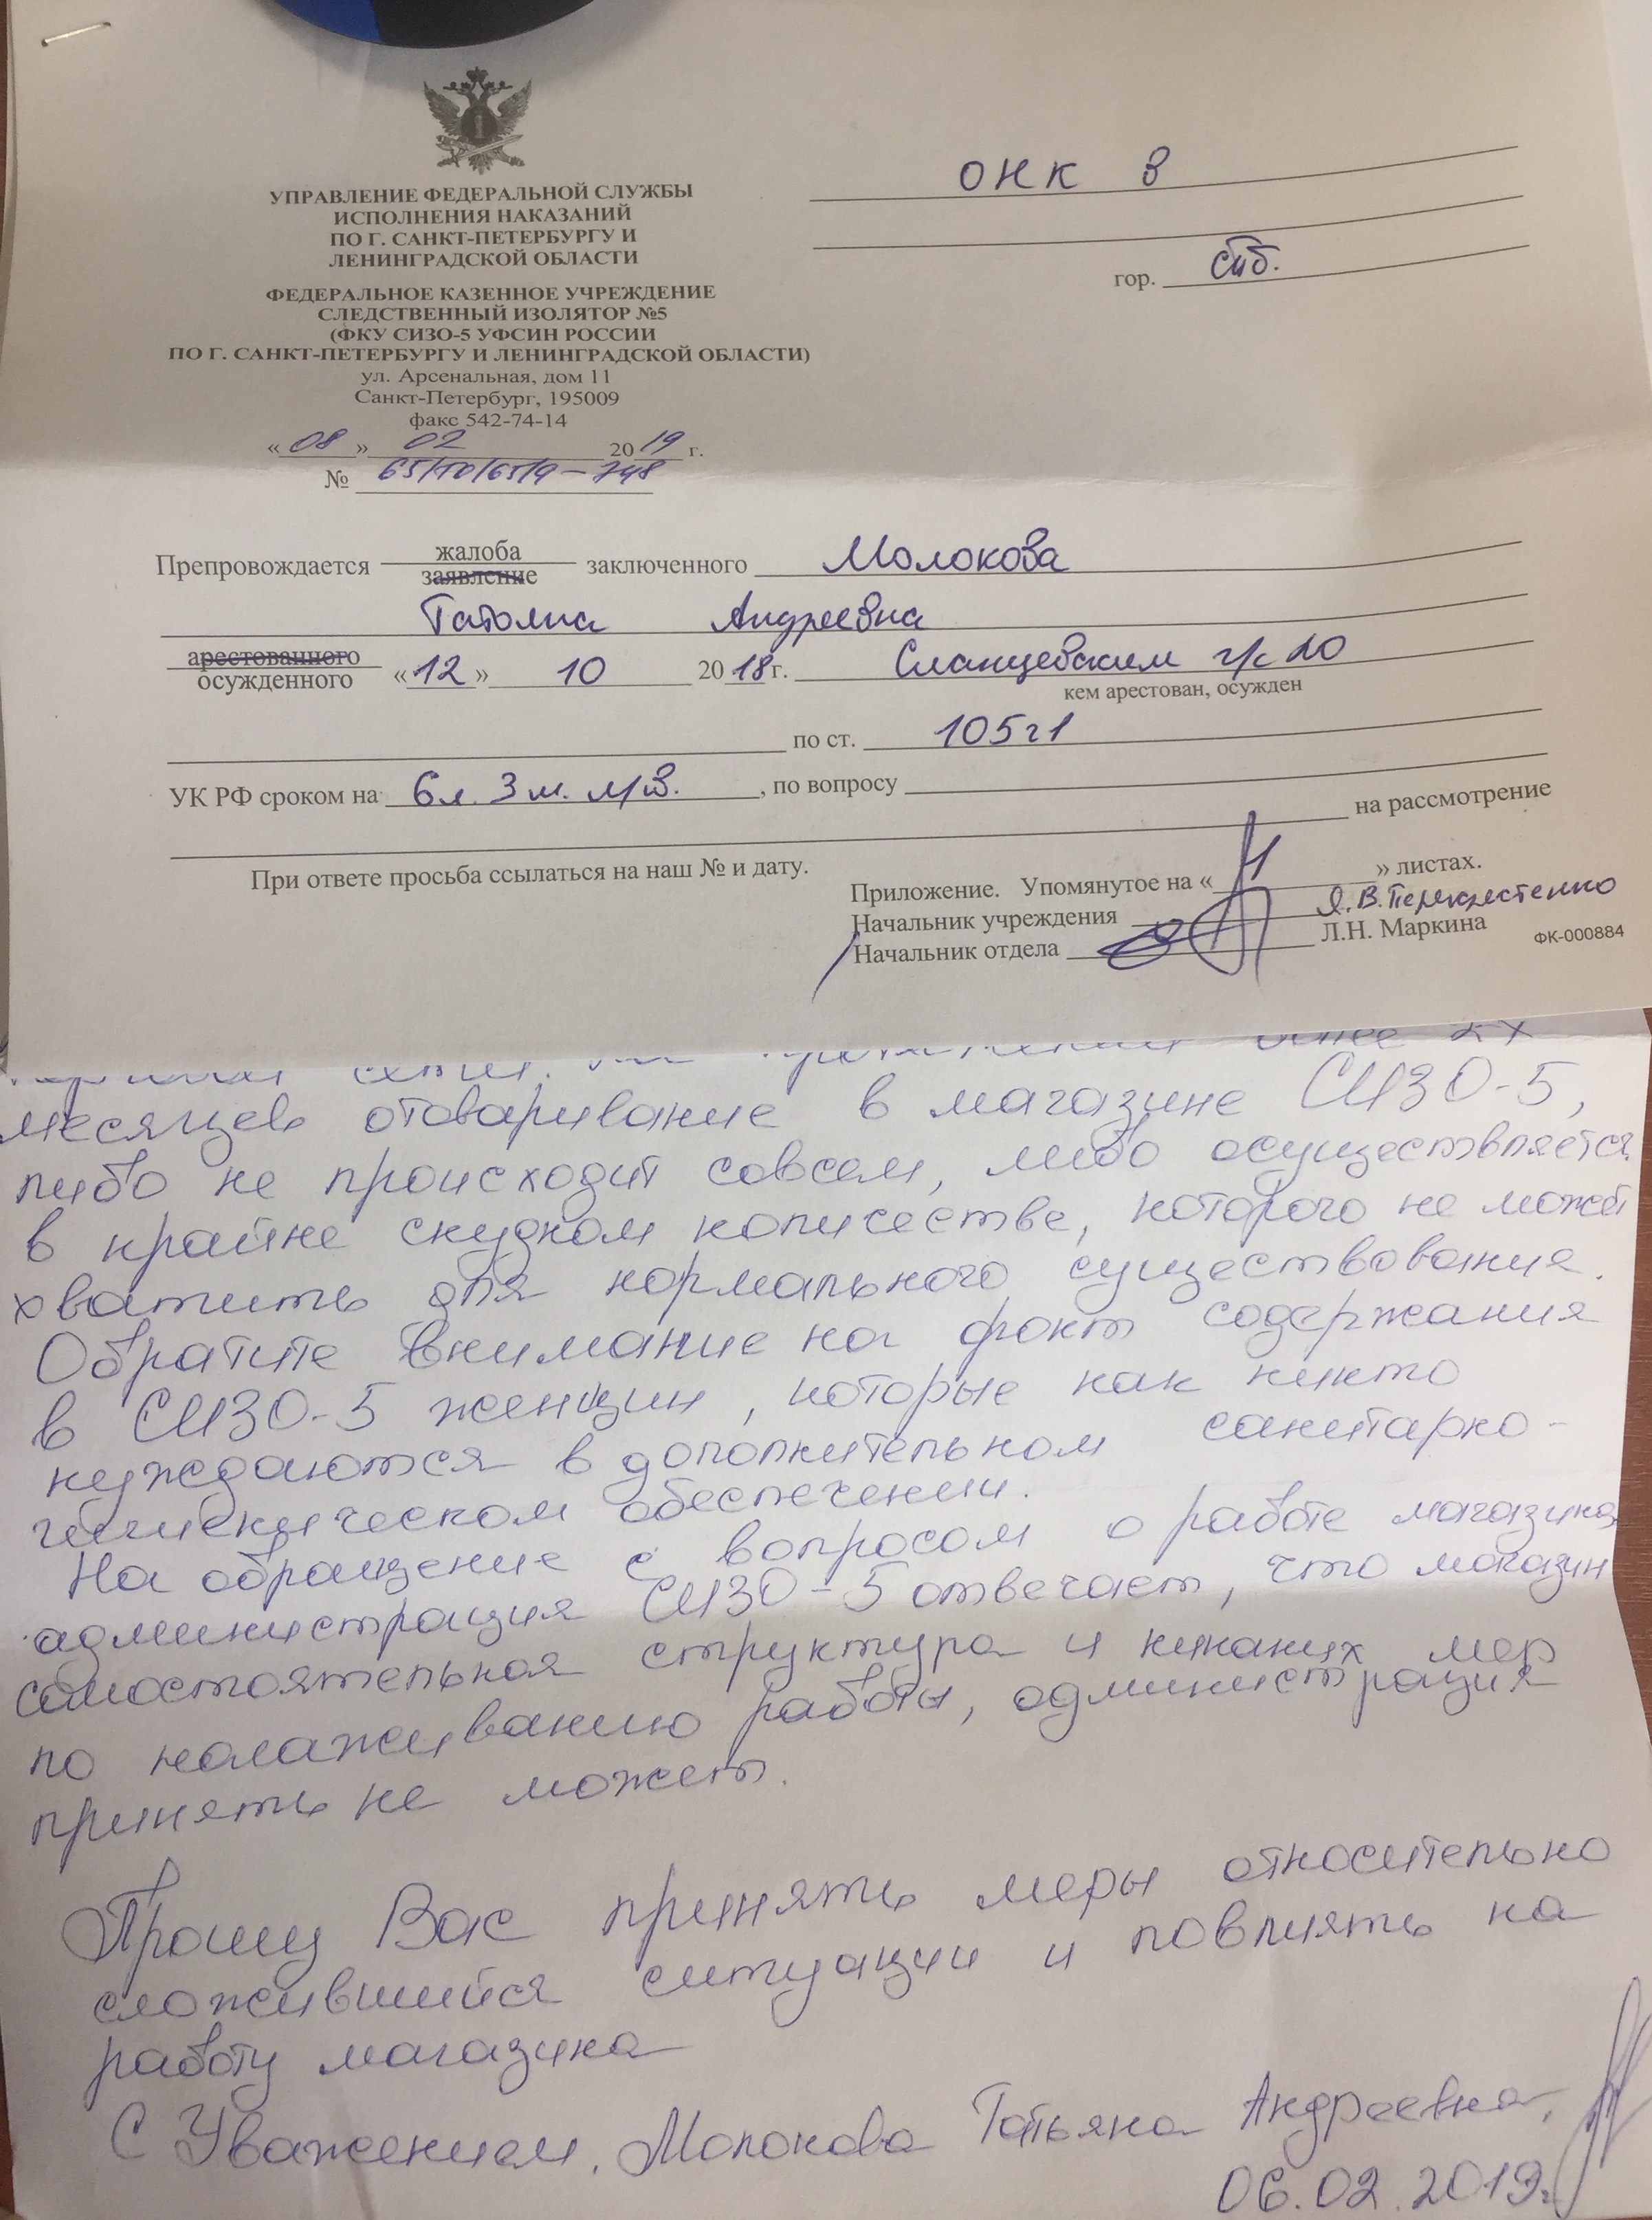 УПРАВЛЕНИЕ ФЕДЕРАЛЬНОЙ СЛУЖБЫ
ИСПОЛНЕНИЯ НАКАЗАНИЙ
ПО Г. САНКТ-ПЕТЕРБУРГУ И
ЛЕНИНГРАДСКОЙ ОБЛАСТИ
ФЕДЕРАЛЬНОЕ КАЗЕННОЕ УЧРЕЖДЕНИЕ
СЛЕДСТВЕННЫЙ ИЗОЛЯТОР №5
(ФКУ СИЗО-5 УФСИН РОССИИ
ПО Г. САНКТ-ПЕТЕРБУРГУ И ЛЕНИНГРАДСКОЙ ОБЛАСТИ)
ул. Арсенальная, дом 11
Санкт-Петербург, 195009
факс 542-74-14
«08» 02 2019 г.
№ 65/ТО/65/9-748
ОНК в
гор. СПб.
Препровождается жалоба
заявление заключенного Молокова
Татьяна Андреевна
арестованного
осужденного «12» 10 2018 г. Сланцевским г/с ЛО
кем арестован, осужден
по ст. 105ч1
УК РФ сроком на 6л. 3м. л/св., по вопросу
на рассмотрение
При ответе просьба ссылаться на наш № и дату.
Приложение. Упомянутое на «1» листах.
Начальник учреждения Я.В.Перекрестенко
Начальник отдела Л.Н. Маркина
ФК-000884
более 2х
месяцев отоваривание в магазине СИЗО-5,
либо не происходит совсем, либо осуществляется
в крайне скудном количестве, которого не может
хватить для нормального существования.
Обратите внимание на факт содержания
в СИЗО-5 женщин, которые как никто
нуждаются в дополнительном санитарно-
гигиеническом обеспечении.
На обращение с вопросом о работе магазина
администрация СИЗО-5 отвечает, что магазин
самостоятельная структура и никаких мер
по налаживанию работы, администрация
принять не может.
Прошу Вас принять меры относительно
сложившийся ситуации и повлиять на
работу магазина
С Уважением, Молокова Татьяна Андреевна,
06.02.2019г.